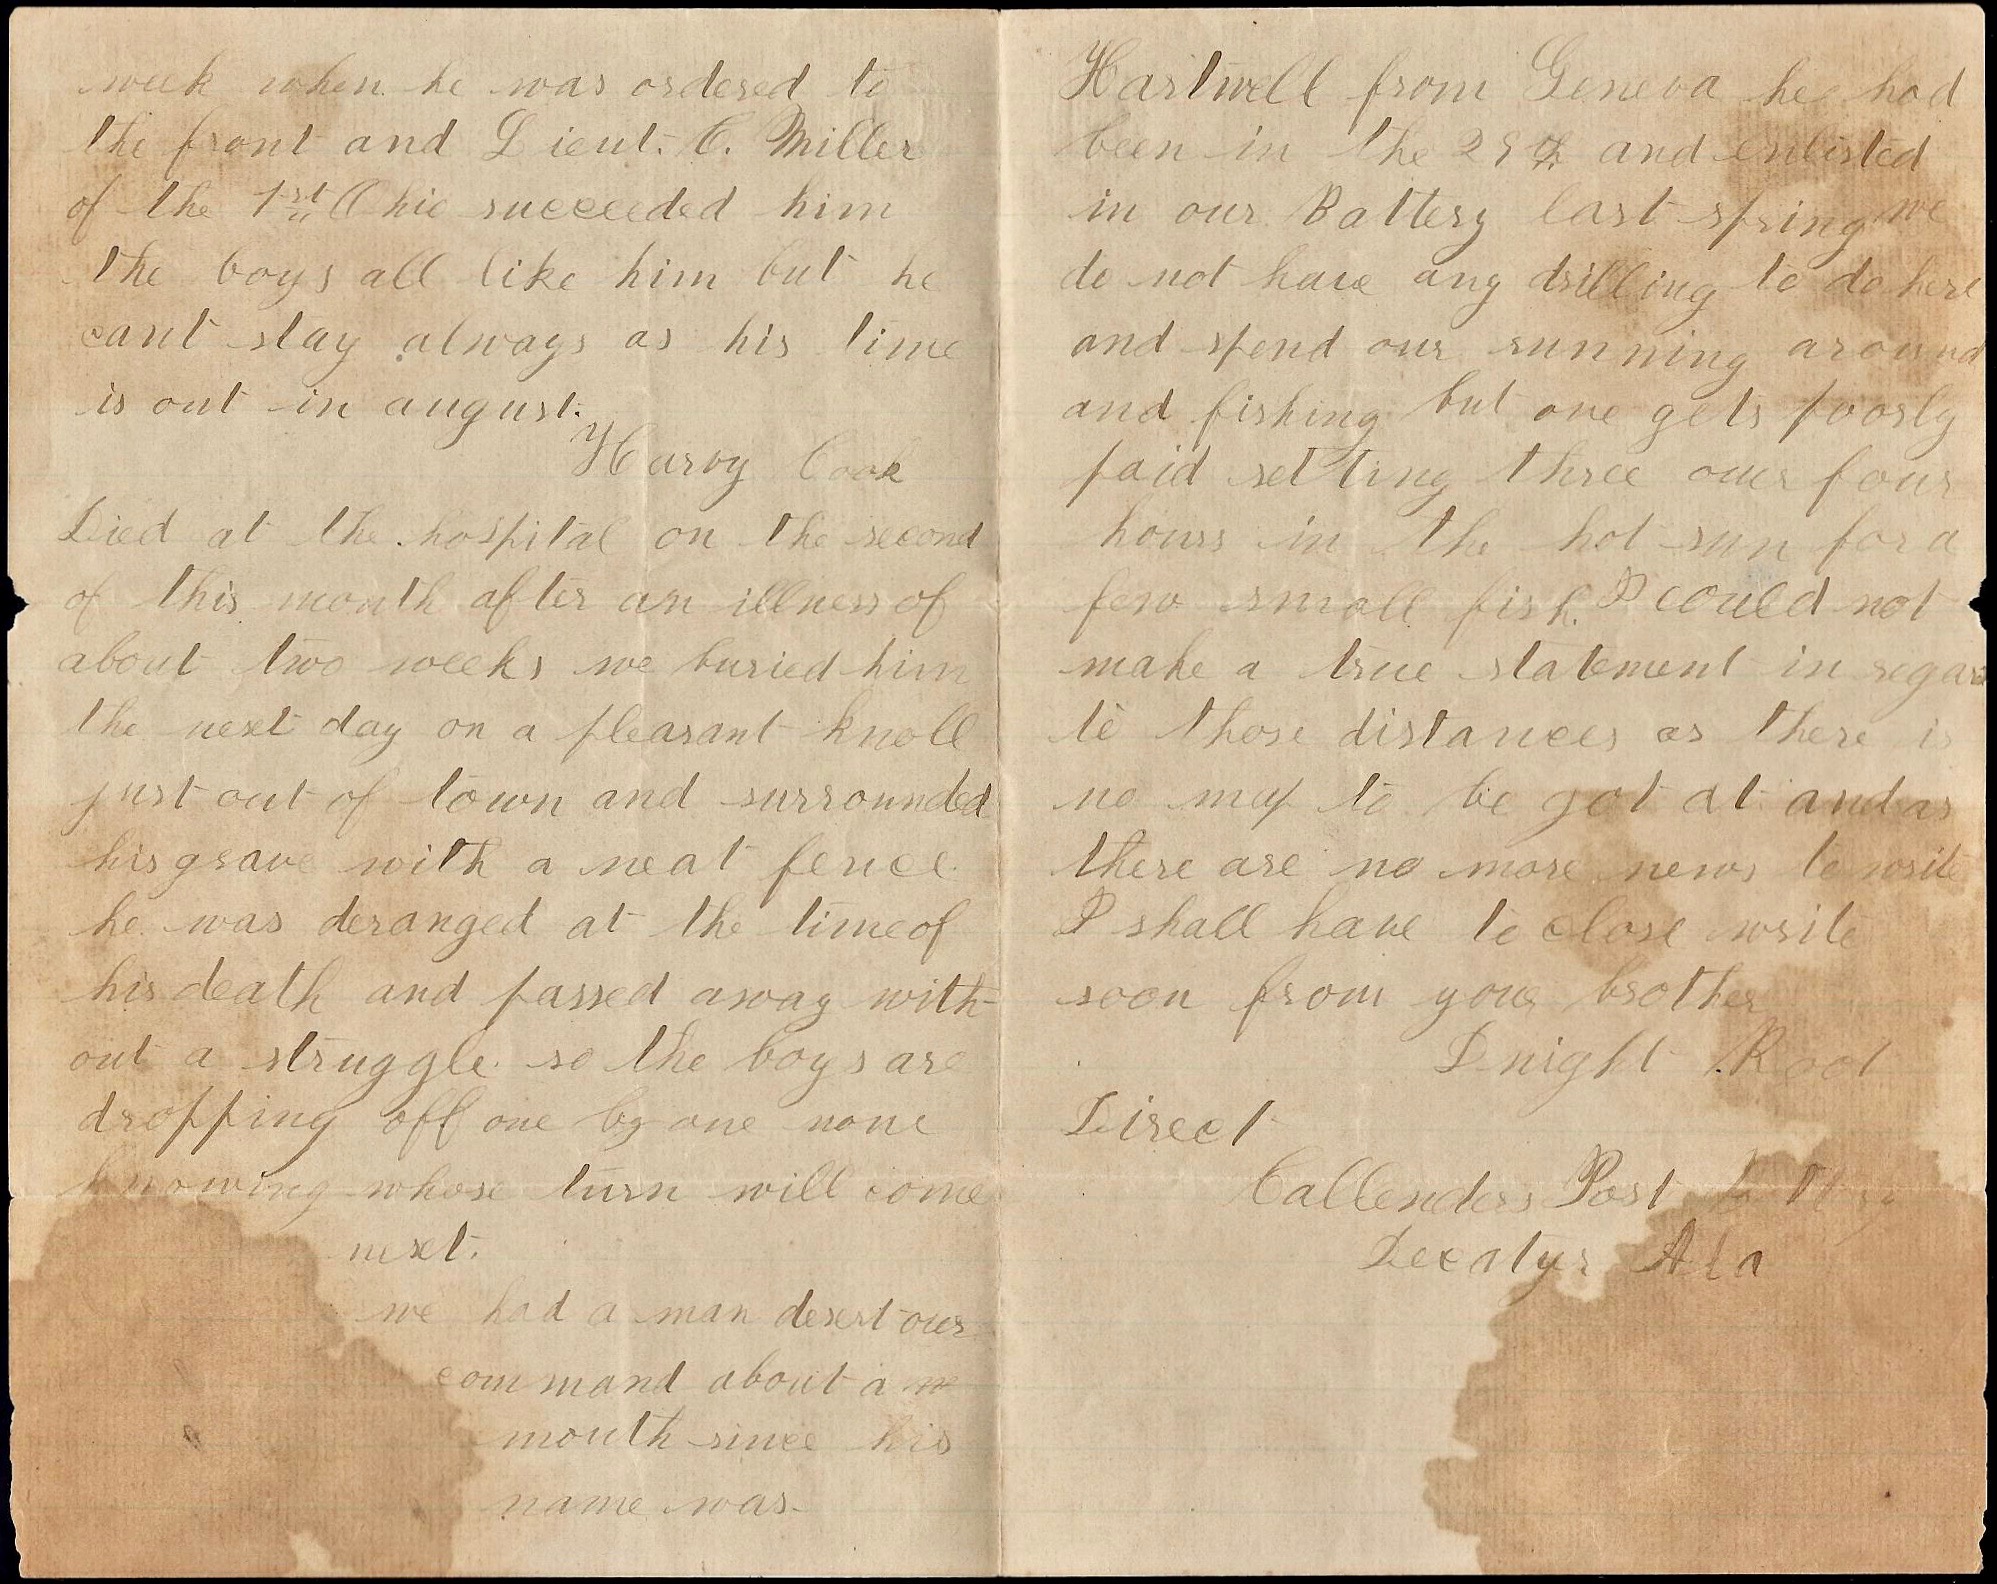 week when he was ordered to
the front and Lieut. C. Miller
of the 1st Ohio succeeded him
the boys all like him but he
cant stay always as his time
is out in august.
Harvy Cook
Died at the hospital on the second
of this month after an illness of
about two weeks we buried him
the next day on a pleasant knoll
just out of town and surrounded
his grave with a neat fence.
he was deranged at the time of
his death and passed away with-
out a struggle. so the boys are
dropping off one by one none
knowing whose turn will come
next.
we had a man desert our
command about a
month since his
name was-
Hartwell from Geneva he had
been in the 29th and enlisted
in our Battery last spring we
do not have any drilling to do here
and spend our running around
and fishing but one gets poorly
paid setting three our four
hours in the hot sun for a
few small fish. I could not
make a true statement in regard
to those distances as there is
no map to be got at and as
there are no more news to write
I shall have to close write
soon from your brother
Dwight Root
Direct
Callenders Post Battery
Decatur Ala